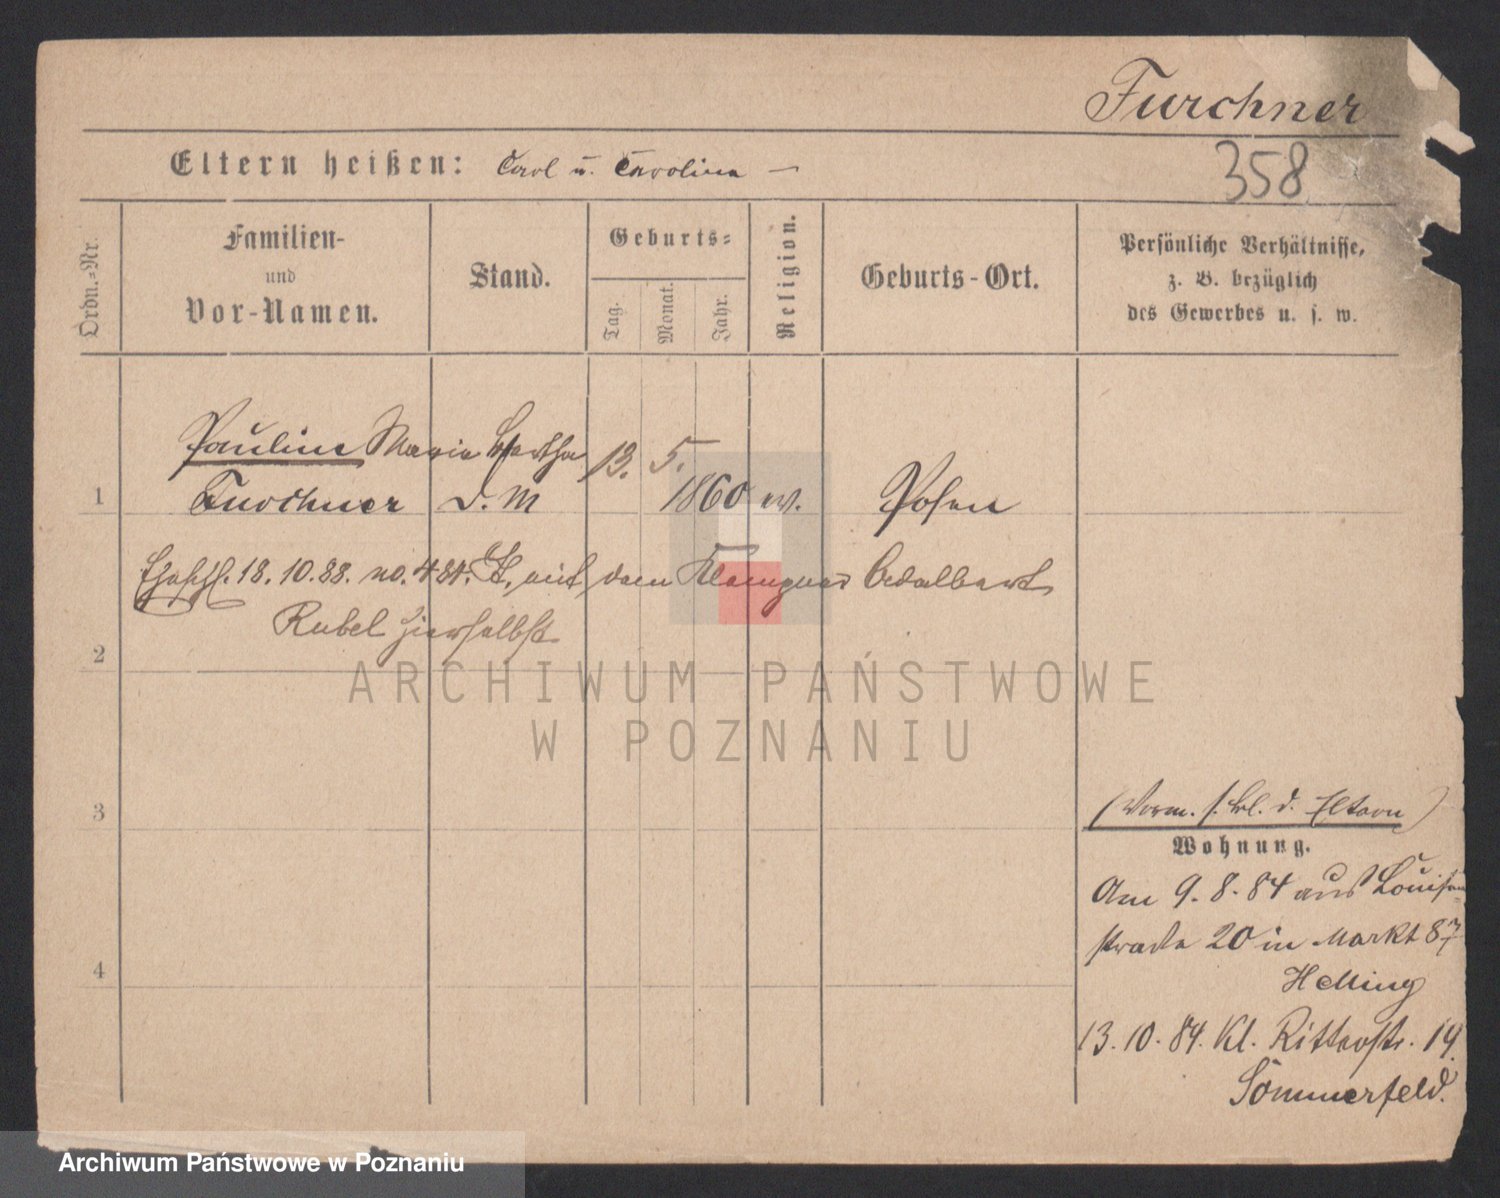 Furchner
358
Eltern heißen: Carl u. Carolina —
Ordn.-Nr.
Familien-
und
Vor-Namen.
Stand.
Geburts-
Tag.
Monat.
Jahr.
Religion.
Geburts-Ort.
Persönliche Verhältnisse,
z. B. bezüglich
des Gewerbes u. s. w.
Pauline Maria Bertha 13. 5.
1 Furchner D. M 1860 ev. Posen
Eheschl. 18. 10. 88. no. 484. St. mit dem Klempner Adalbert
Rubel hierselbst
2
ARCHIWUM PAŃSTWOWE
W POZNANIU
3
(Vorm. s. Bl. d. Eltern)
Wohnung.
Am 9. 8. 84 aus Louisen-
straße 20 in Markt 87
4
Helling
13. 10. 84. Kl. Ritterstr. 19.
Sommerfeld.
Archiwum Państwowe w Poznaniu